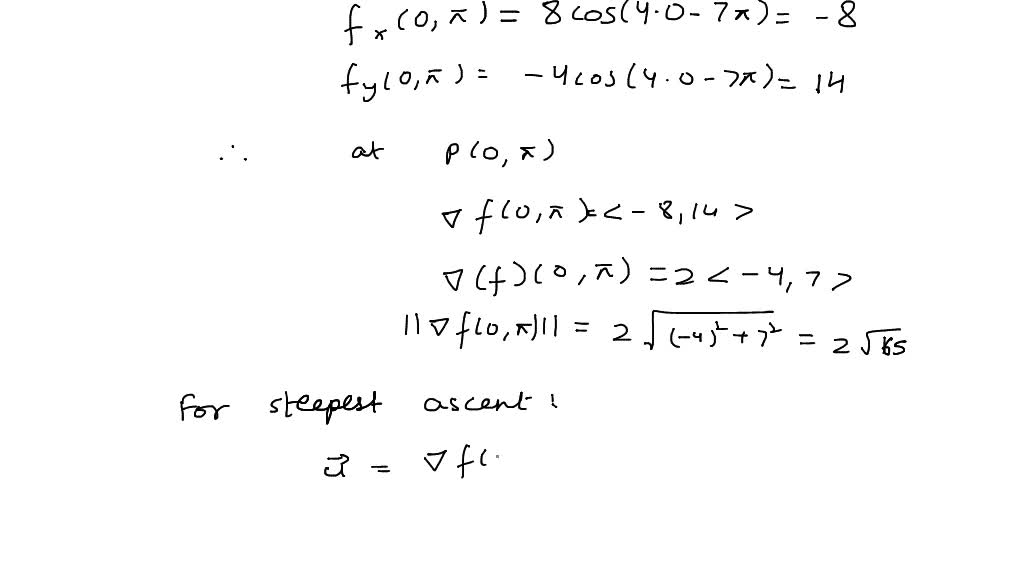 fx(0, π) = 8 cos(4·0 - 7π) = -8
fy(0, π) = -4 cos(4·0 - 7π) = 14
∴ at P(0, π)
∇ f(0, π) = < -8, 14 >
∇(f)(0, π) = 2 < -4, 7 >
||∇f(0, π)|| = 2 √((-4)² + 7²) = 2 √65
For steepest ascent :
u⃗ = ∇ f(